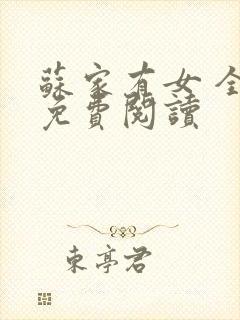 蘇家有女 全
免費閱讀
東亭君